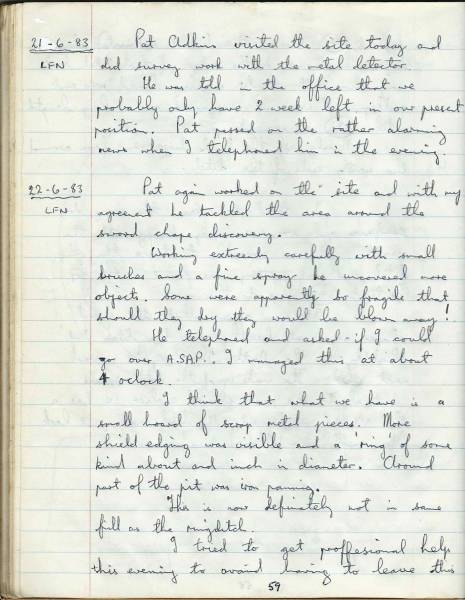 21-6-83 Pat Adkins visited the site today and
LFN did survey work with the metal detector.
He was told in the office that we
probably only have 2 week left in our present
position. Pat passed on the rather alarming
news when I telephoned him in the evening.
22-6-83 Pat again worked on the site and with my
LFN agreement he tackled the area around the
sword chape discovery.
Working extremely carefully with small
brushes and a fine spray he uncovered more
objects. Some were apparently so fragile that
should they dry they would be blown away!
He telephoned and asked if I could
go over A.S.A.P. I managed this at about
4 oclock.
I think that what we have is a
small hoard of scrap metal pieces. More
shield edging was visible and a 'ring' of some
kind about and inch in diameter. Around
part of the pit was iron panning.
This is now definately not in same
fill as the ringditch.
I tried to get proffesional help
this evening to avoid having to leave this
59